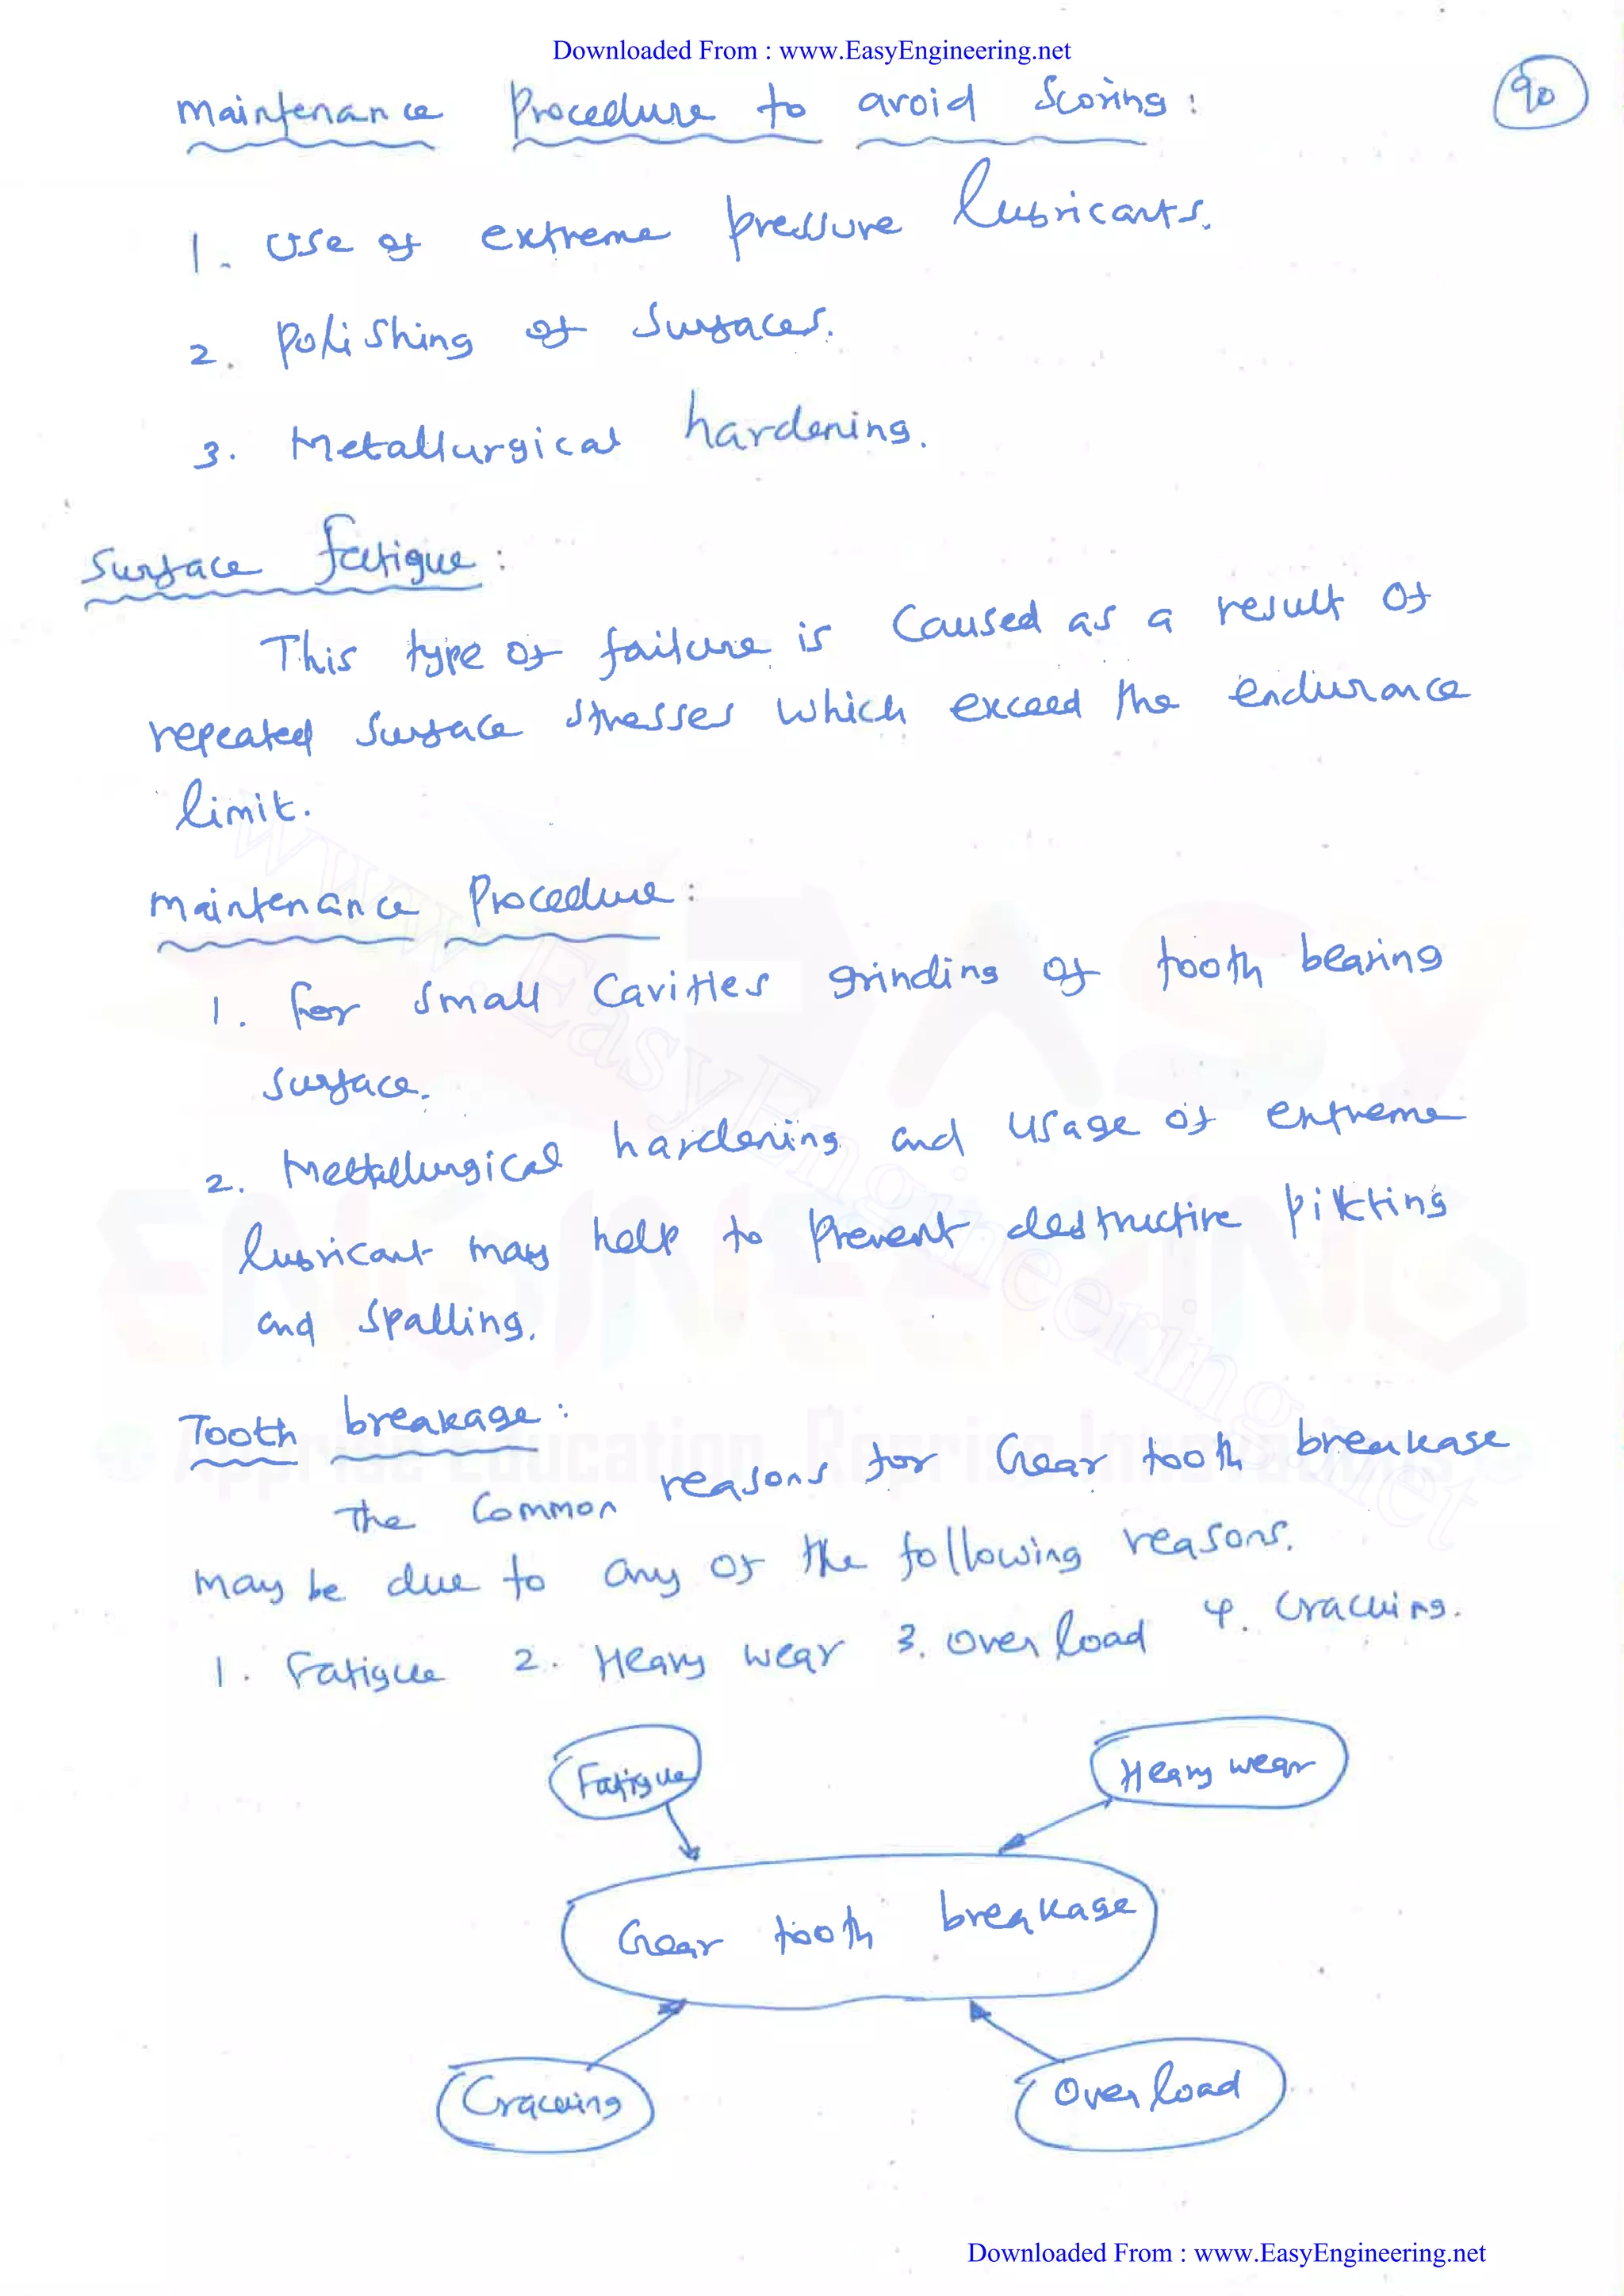 Downloaded From : www.EasyEngineering.net
90
Maintenance Procedure to avoid Scoring :
1. Use of extreme pressure lubricants.
2. Polishing of Surfaces.
3. Metallurgical hardening.
Surface fatigue :
This type of failure is Caused as a result of
repeated Surface stresses which exceed the endurance
limit.
Maintenance Procedure :
1. For small Cavities grinding of tooth bearing
surface.
2. Metallurgical hardening and usage of extreme
lubricant may help to prevent destructive pitting
and spalling.
Tooth breakage :
The Common reasons for Gear tooth breakage
may be due to any of the following reasons.
1. Fatigue 2. Heavy wear 3. Over load 4. Cracking.
Fatigue
Heavy wear
Gear tooth breakage
Cracking
Over load
www.EasyEngineering.net
EASY
ENGINEERING
Apprise Education, Reprise Innovations
Downloaded From : www.EasyEngineering.net